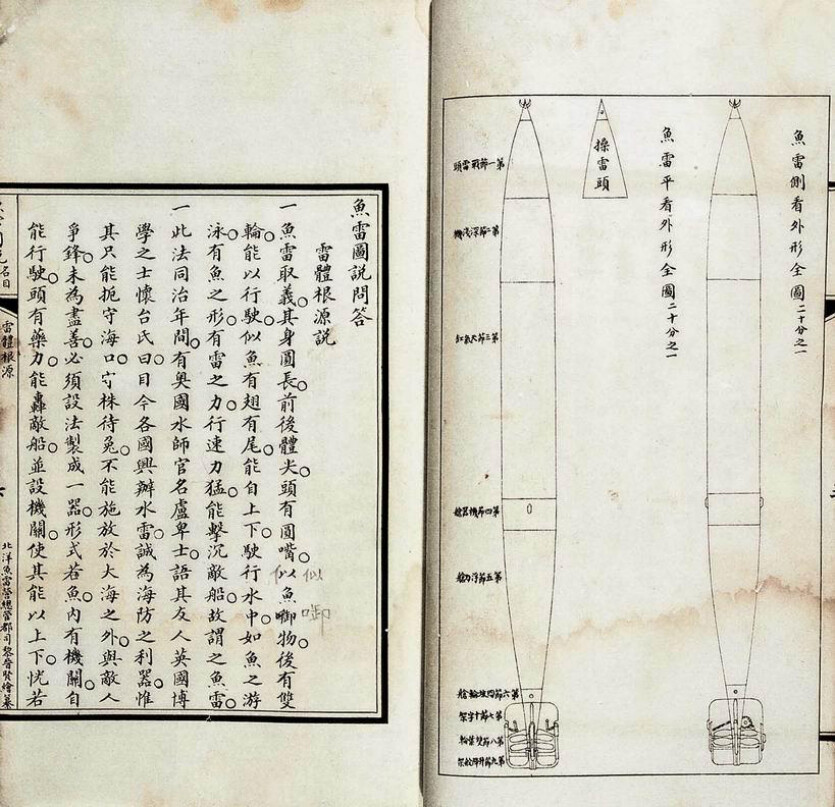 魚雷側看外形全圖二十分之一
魚雷平看外形全圖二十分之一
操雷頭
第一節戰雷頭
第二節深淺機
第三節天氣缸
第四節機器艙
第五節浮力艙
第七節十字架
第八節雙葉輪
第九節
魚雷圖說問答
雷體根源說
一魚雷取義其身圓長。前後體尖。頭有圓嘴。似魚啣物。後有雙
似啣
輪。能以行駛。似魚有翅有尾。能自上下。駛行水中。如魚之游
泳。有魚之形。有雷之力。行速力猛。能擊沉敵船。故謂之魚雷。
一此法同治年間。有奧國水師官名盧卑士。語其友人英國博
學之士懷台氏曰。目今各國興辦水雷。誠為海防之利器。惟
其只能扼守海口。守株待兔。不能施放於大海之外。與敵人
爭鋒。未為盡善。必須設法製成一器。形式若魚。內有機關。自
能行駛。頭有藥力。能轟敵船。並設機關。使其能以上下。恍若
名目
雷體根源
北洋魚雷營總管都司黎晉賢繪纂